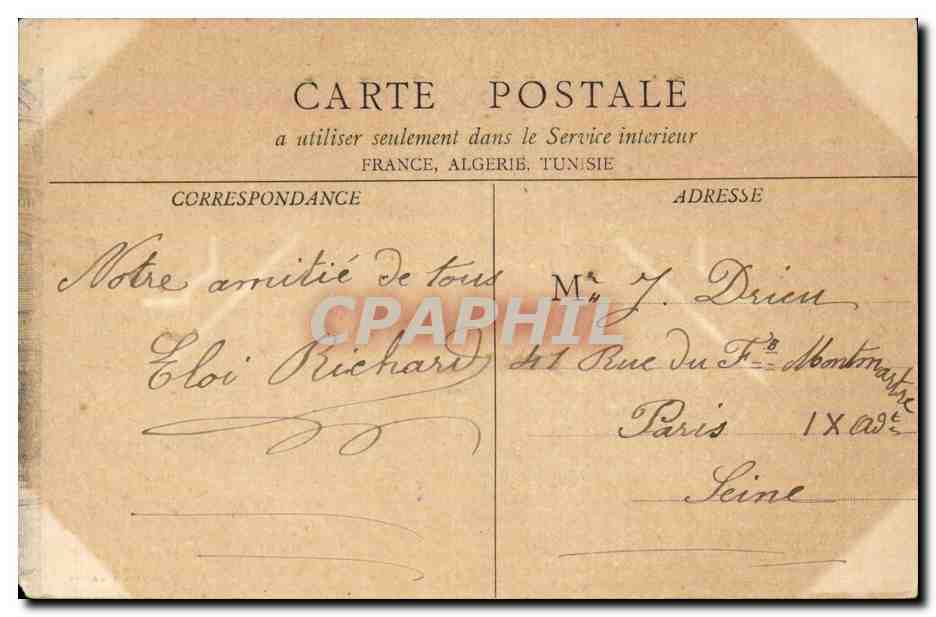 CARTE POSTALE
a utiliser seulement dans le Service interieur
FRANCE, ALGERIE, TUNISIE
CORRESPONDANCE
Notre amitié de tous
Eloi Richard
ADRESSE
Mr J. Drieu
41 Rue du Fg Montmartre
Paris IX Adt
Seine
CPAPHIL